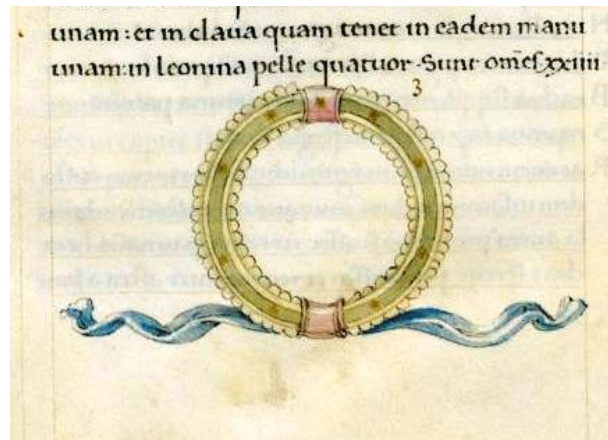 unam: et in claua quam tenet in eadem manu
unam: in leonina pelle quatuor. Sunt om̅es xxiiii
3